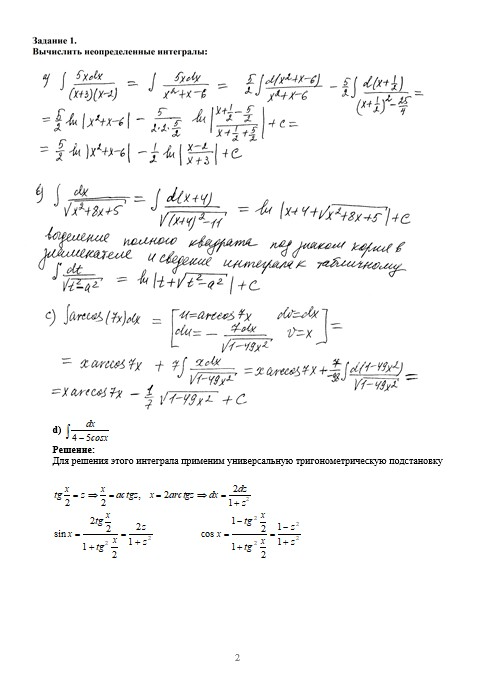 Задание 1.
Вычислить неопределенные интегралы:
a) ∫ 5xdx/((x+3)(x-2)) = ∫ 5xdx/(x²+x-6) = 5/2 ∫ d(x²+x-6)/(x²+x-6) - 5/2 ∫ d(x+1/2)/((x+1/2)²-25/4) =
= 5/2 ln|x²+x-6| - 5/(2·2·5/2) ln|(x+1/2-5/2)/(x+1/2+5/2)| + c =
= 5/2 ln|x²+x-6| - 1/2 ln|(x-2)/(x+3)| + c
б) ∫ dx/√(x²+8x+5) = ∫ d(x+4)/√((x+4)²-11) = ln|x+4+√(x²+8x+5)| + C
выделение полного квадрата под знаком корня в
знаменателе и сведение интеграла к табличному
∫ dt/√(t²-a²) = ln|t+√(t²-a²)| + C
c) ∫arccos(7x)dx = [u=arccos7x dv=dx
du=- 7dx/√(1-49x²) v=x] =
= x arccos7x + 7∫ xdx/√(1-49x²) = x arccos7x + 7/-98 ∫ d(1-49x²)/√(1-49x²) =
= x arccos7x - 1/7 √(1-49x²) + C
d) ∫ dx/(4-5cosx)
Решение:
Для решения этого интеграла применим универсальную тригонометрическую подстановку
tg x/2 = z ⇒ x/2 = actgz, x = 2arctgz ⇒ dx = 2dz/(1+z²)
sin x = (2tg x/2)/(1+tg² x/2) = 2z/(1+z²) cos x = (1-tg² x/2)/(1+tg² x/2) = (1-z²)/(1+z²)
2